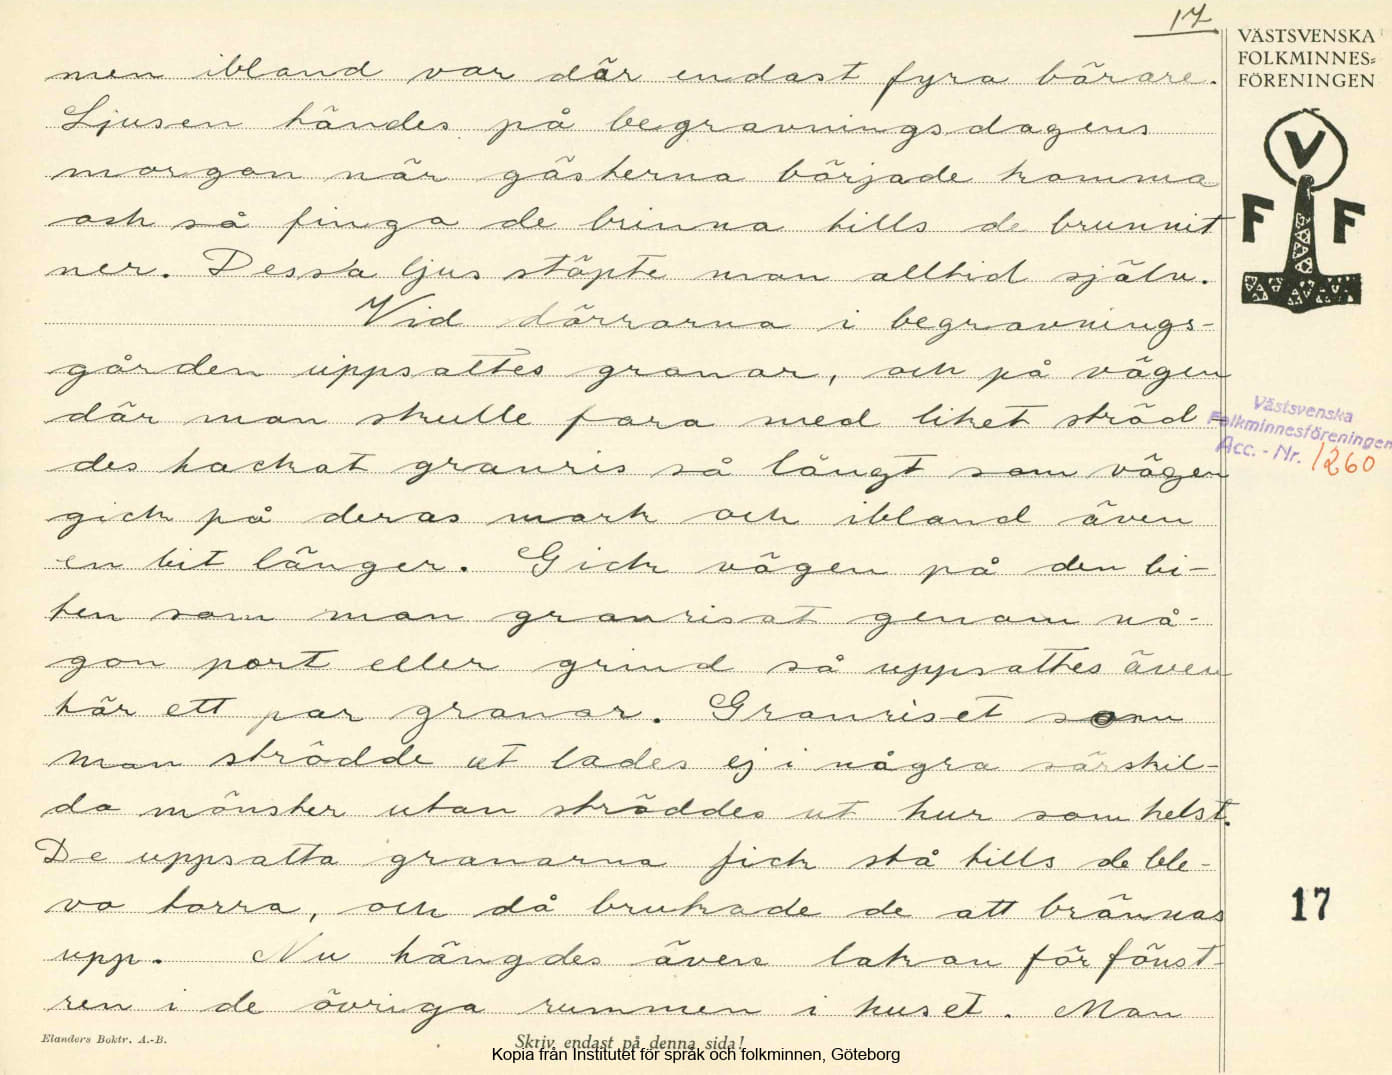 17
VÄSTSVENSKA
FOLKMINNES=
FÖRENINGEN
V
F F
men ibland var där endast fyra bärare.
Ljusen tändes på begravningsdagens
morgon när gästerna började komma
och så fingo de brinna tills de brunnit
ner. Dessa ljus stöpte man alltid själv.
Vid dörrarna i begravnings-
gården uppsattes granar, och på vägen
där man skulle fara med liket ströd-
des hackat granris så långt som vägen
gick på deras mark och ibland även
en bit länger. Gick vägen på den bi-
ten som man granrisat genom nå-
gon port eller grind så uppsattes även
här ett par granar. Granriset som
man strödde ut lades ej i några särskil-
da mönster utan ströddes ut hur som helst.
De uppsatta granarna fick stå tills de ble-
vo torra, och då brukade de att brännas
upp. Nu hängdes även lakan för fönst-
ren i de övriga rummen i huset. Man
Västsvenska
Folkminnesföreningen
Acc. - Nr. 1260
17
Elanders Boktr. A.-B.
Skriv endast på denna sida!
Kopia från Institutet för språk och folkminnen, Göteborg